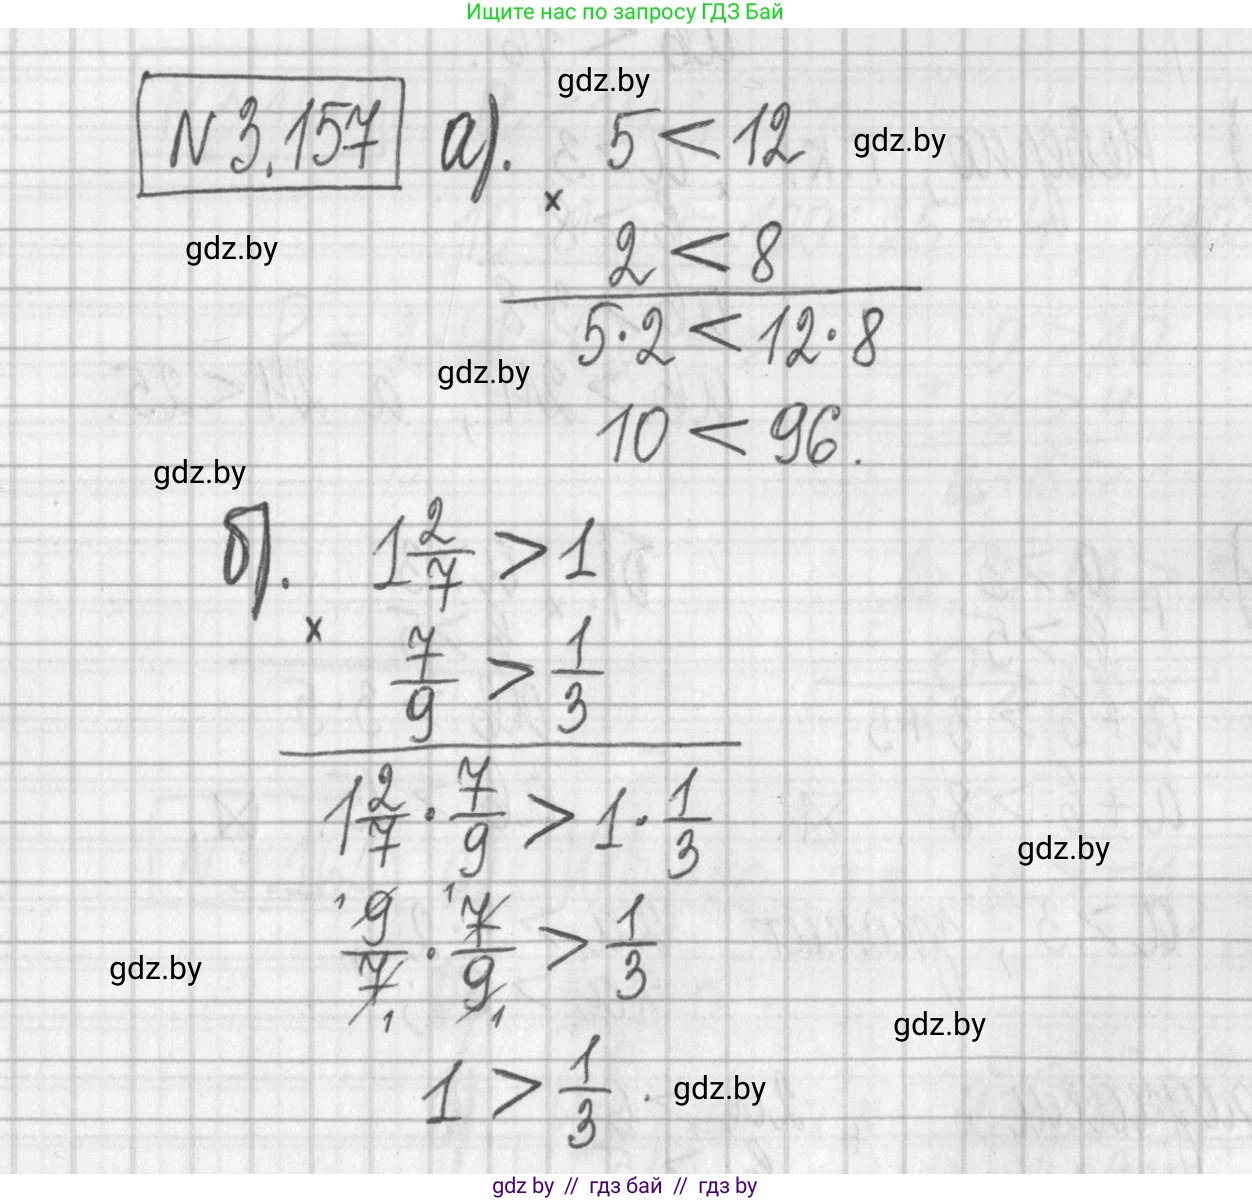 Ищите нас по запросу ГДЗ Бай
gdz.by
N 3.157 а). 5 < 12 gdz.by
×
gdz.by 2 < 8
5·2 < 12·8
gdz.by
10 < 96.
gdz.by
б). 1 2/7 > 1
×
7/9 > 1/3
1 2/7 · 7/9 > 1 · 1/3
gdz.by
1 9/7 1 · 1 7/9 1 > 1/3
gdz.by
gdz.by
1 > 1/3 . gdz.by
gdz by // гдз бай // гдз by